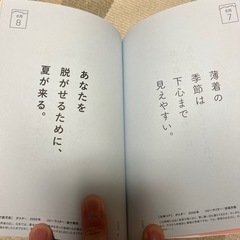 6月
7
薄着の
季節は
下心まで
見えやすい。
6月
8
あなたを
脱がせるために、
夏が来る。